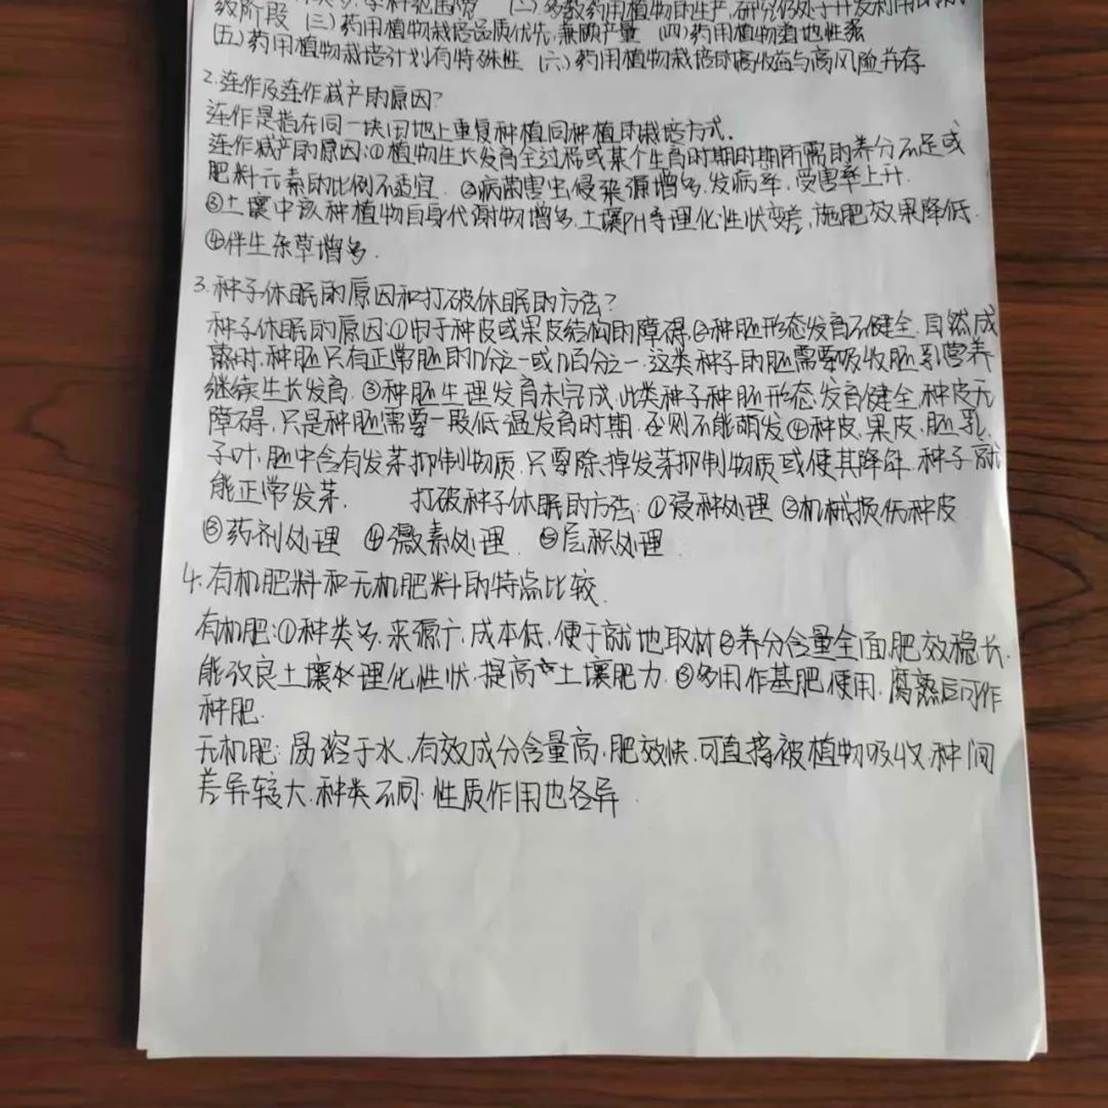 学科范围广 (二)多数药用植物的生产,研究仍处于开发利用的初
级阶段 (三)药用植物栽培品质优先,兼顾产量 (四)药用植物道地性强
(五)药用植物栽培计划有特殊性 (六)药用植物栽培的高收益与高风险并存
2.连作及连作减产的原因?
连作是指在同一块田地上重复种植同种植的栽培方式.
连作减产的原因:①植物生长发育全过程或某个生育时期时期所需的养分不足或
肥料元素的比例不适宜. ②病菌害虫侵染源增多,发病率,受害率上升.
③土壤中该种植物自身代谢物增多,土壤PH等理化性状变差,施肥效果降低.
④伴生杂草增多.
3.种子休眠的原因和打破休眠的方法?
种子休眠的原因:①由于种皮或果皮结构的障碍.②种胚形态发育不健全.自然成
熟时,种胚只有正常胚的几分之一或几百分之一.这类种子的胚需要吸收胚乳营养
继续生长发育.③种胚生理发育未完成.此类种子种胚形态发育健全,种皮无
障碍,只是种胚需要一段低温发育时期,否则不能萌发④种皮,果皮,胚乳,
子叶,胚中含有发芽抑制物质.只要除掉发芽抑制物质或使其降解,种子就
能正常发芽. 打破种子休眠的方法:①浸种处理 ②机械损伤种皮
③药剂处理 ④激素处理. ⑤层积处理.
4.有机肥料和无机肥料的特点比较.
有机肥:①种类多,来源广,成本低,便于就地取材②养分含量全面肥效稳长.
能改良土壤理化性状,提高土壤肥力.③多用作基肥使用,腐熟后可作
种肥.
无机肥:易溶于水,有效成分含量高,肥效快.可直接被植物吸收,种间
差异较大.种类不同.性质作用也各异.